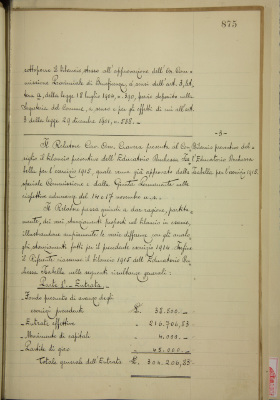 875
sottopone il bilancio stesso all'approvazione dell'On. Com-
missione Provinciale di Beneficenza, ai sensi dell'art. 3, let-
tera a, della legge 18 luglio 1904, n. 390, previo deposito nella
Segreteria del Comune, a senso e per gli effetti di cui all'art.
3 della legge 29 dicembre 1901, n. 538. -
-3-
Il Relatore Cav. Com. presenta al Consiglio
il bilancio preventivo dell'Educatorio
per l'esercizio 1915, quale venne già approvato dalla
speciale Commissione e dalla Giunta Comunale nelle
rispettive adunanze del 17 novembre u.s.
Il Relatore passa quindi a dar ragione, partita-
mente, dei vari stanziamenti proposti nel bilancio in esame,
illustrandone ampiamente le varie differenze con gli analo-
ghi stanziamenti fatti per il precedente esercizio 1914. Infine
il Riparto riassume il bilancio 1915 dell'Educatorio
nelle seguenti risultanze generali:
Parte I.a - Entrata -
Fondo presunto di avanzo degli
esercizi precedenti £. 38.500. -
- Entrate effettive - 216.706,83
- Movimento di capitale - 4.000. -
- Partite di giro - 45.000. -
Totale generale dell'Entrata £. 304.206,83